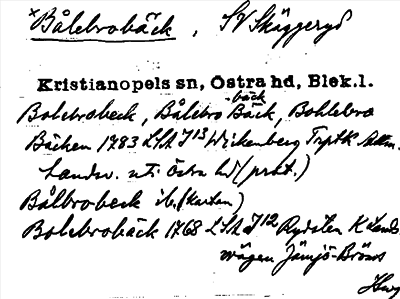 ×Bålebrobäck, SV Skäggeryd
Kristianopels sn, Östra hd, Blek.l.
Bolebrobeck, Bålebro Bäck, Bohlebro
-bäck
Bäcken 1783 LSA J13 Wickenberg Trptk Attm.
Landsv. uti Östra hd (prot.)
Bålbrobeck ib. (kartan)
Bolebrobäck 1768 LSA J12 Rydsten K Lands
wägen Jämjö-Bröms